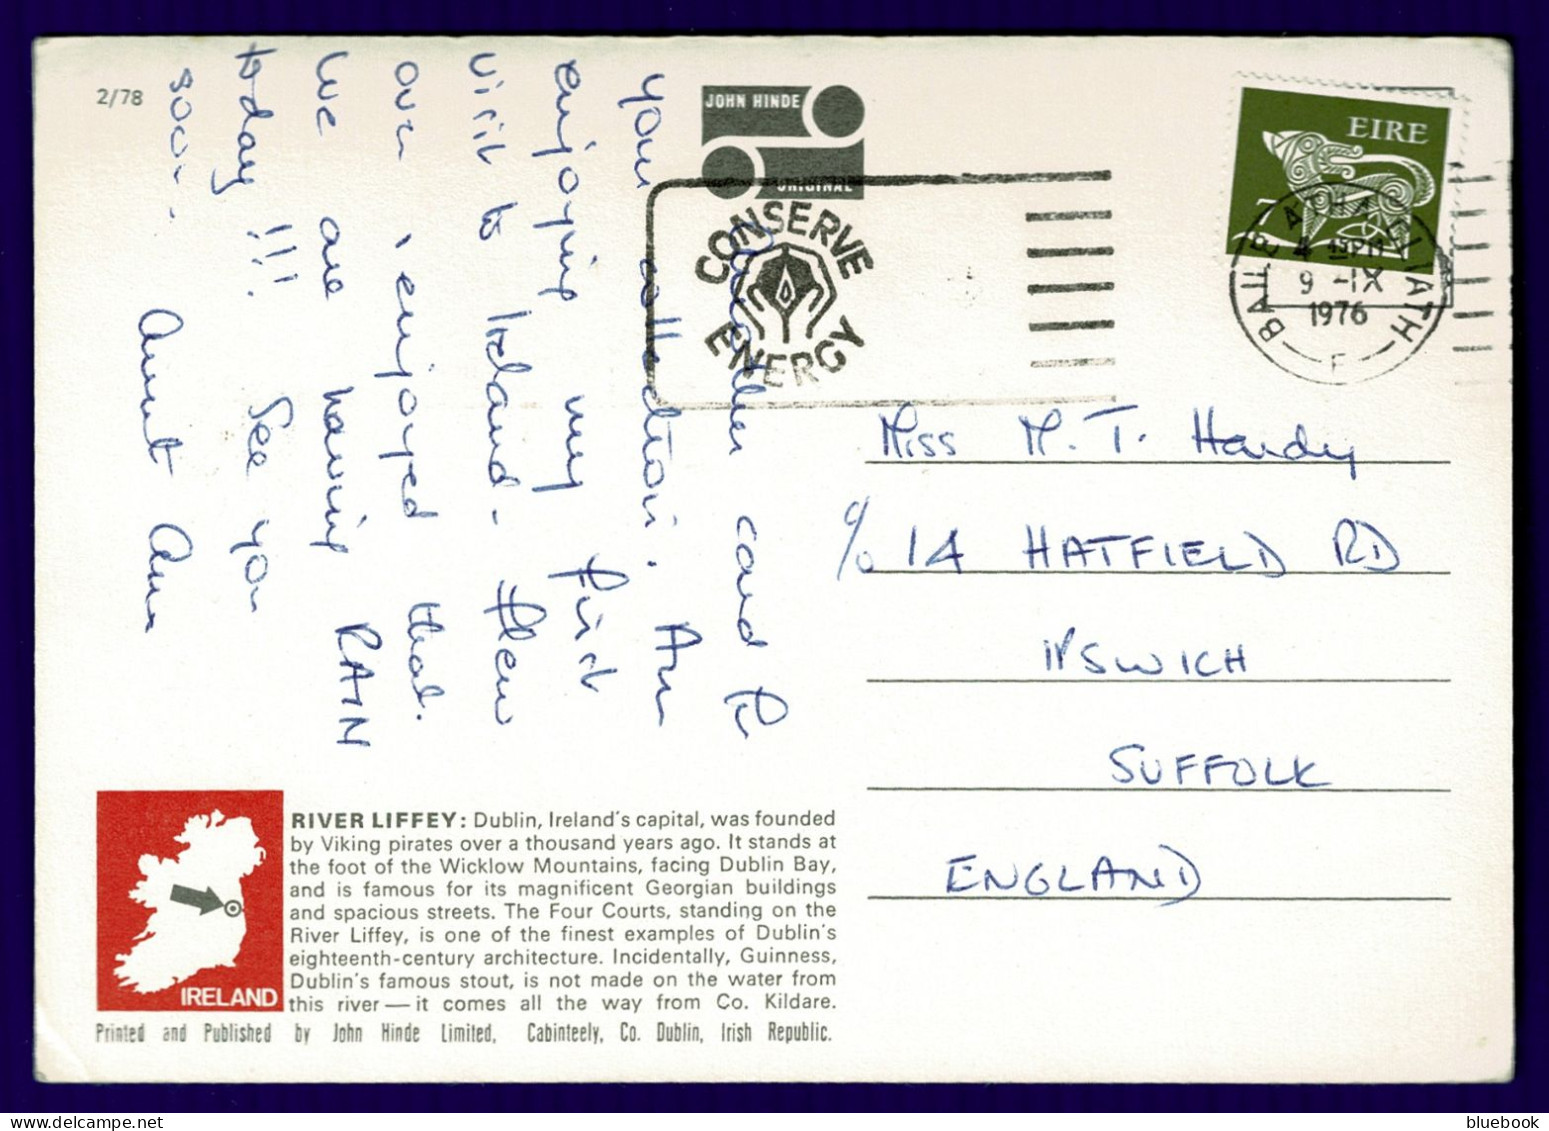 2/78
JOHN HINDE
ORIGINAL
CONSERVE
ENERGY
EIRE
7
BAILE ÁTHA CLIATH
4 PM
9 -IX
1976
F
Another card for
your collection. Am
enjoying my first
visit to Ireland. Flew
over & enjoyed that.
We are having RAIN
today !!! See you
soon.
Aunt Ann
Miss M. T. Hardy
c/o 14 HATFIELD RD
IPSWICH
SUFFOLK
ENGLAND
IRELAND
RIVER LIFFEY: Dublin, Ireland's capital, was founded
by Viking pirates over a thousand years ago. It stands at
the foot of the Wicklow Mountains, facing Dublin Bay,
and is famous for its magnificent Georgian buildings
and spacious streets. The Four Courts, standing on the
River Liffey, is one of the finest examples of Dublin's
eighteenth-century architecture. Incidentally, Guinness,
Dublin's famous stout, is not made on the water from
this river — it comes all the way from Co. Kildare.
Printed and Published by John Hinde Limited, Cabinteely, Co. Dublin, Irish Republic.
bluebook